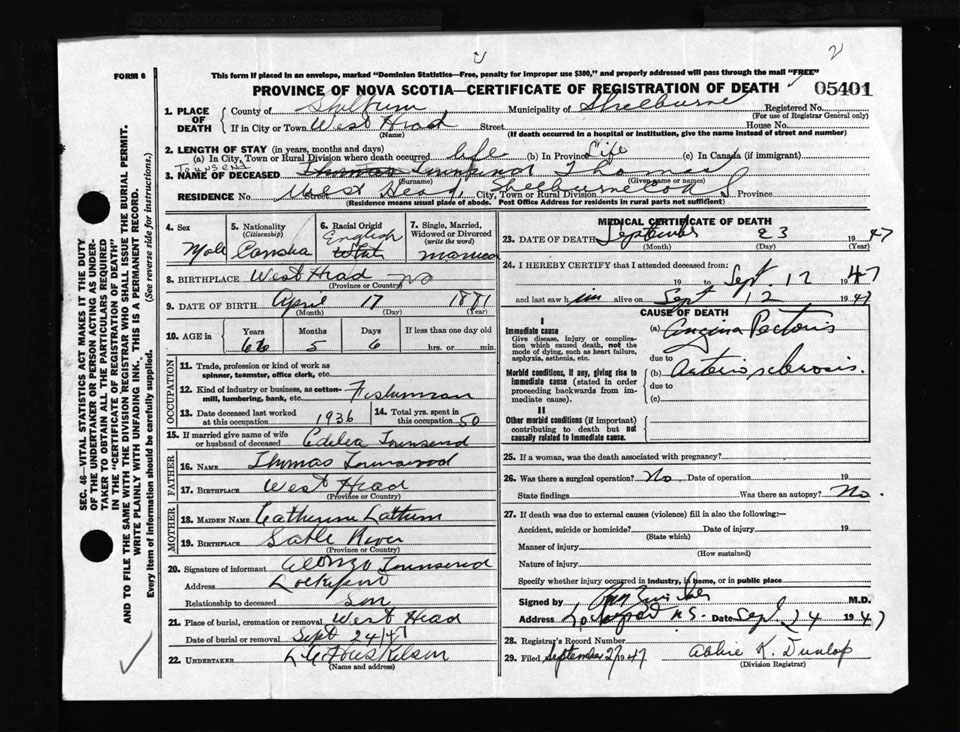 2
FORM 6
This form if placed in an envelope, marked "Dominion Statistics—Free, penalty for improper use $300," and properly addressed will pass through the mail "FREE"
PROVINCE OF NOVA SCOTIA—CERTIFICATE OF REGISTRATION OF DEATH
05401
1. PLACE OF DEATH
County of Municipality of Shelburne Registered No.
(For use of Registrar General only)
If in City or Town West Head Street House No.
(Name) (If death occurred in a hospital or institution, give the name instead of street and number)
2. LENGTH OF STAY (in years, months and days)
(a) In City, Town or Rural Division where death occurred life (b) In Province Life (c) In Canada (if immigrant)
Townsend
3. NAME OF DECEASED Thomas Townsend Thomas
(Surname) (Given name or names)
RESIDENCE No. Street West Head, City, Town or Rural Division Shelburne Co Province
(Residence means usual place of abode. Post Office Address for residents in rural parts not sufficient)
4. Sex
Male
5. Nationality
(Citizenship)
Canada
6. Racial Origin
English
White
7. Single, Married, Widowed or Divorced
(write the word)
married
8. BIRTHPLACE West Head NS
(Province or Country)
9. DATE OF BIRTH April 17 1881
(Month) (Day) (Year)
10. AGE in
Years Months Days If less than one day old
66 5 6 hrs. or min.
OCCUPATION
11. Trade, profession or kind of work as
spinner, teamster, office clerk, etc.
12. Kind of industry or business, as cotton-
mill, lumbering, bank, etc. Fisherman
13. Date deceased last worked
at this occupation 1936
14. Total yrs. spent in
this occupation 50
15. If married give name of wife
or husband of deceased Edelea Townsend
FATHER
16. NAME Thomas Townsend
17. BIRTHPLACE West Head
(Province or Country)
MOTHER
18. MAIDEN NAME Catherine
19. BIRTHPLACE Sable River
(Province or Country)
20. Signature of informant Alonzo Townsend
Address Lockeport
Relationship to deceased Son
21. Place of burial, cremation or removal West Head
Date of burial or removal Sept 24/47
22. UNDERTAKER
(Name and address)
MEDICAL CERTIFICATE OF DEATH
23. DATE OF DEATH September 23 1947
(Month) (Day) (Year)
24. I HEREBY CERTIFY that I attended deceased from:
19 to Sept. 12 1947
and last saw him alive on Sept 12 1947
CAUSE OF DEATH
I
Immediate cause
Give disease, injury or complication which caused death, not the mode of dying, such as heart failure, asphyxia, asthenia, etc.
(a) Angina Pectoris
due to
Morbid conditions, if any, giving rise to immediate cause (stated in order proceeding backwards from immediate cause).
(b) Arteriosclerosis.
due to
(c)
II
Other morbid conditions (if important) contributing to death but not causally related to immediate cause.
25. If a woman, was the death associated with pregnancy?
26. Was there a surgical operation? No Date of operation 19
State findings Was there an autopsy? No.
27. If death was due to external causes (violence) fill in also the following:—
Accident, suicide or homicide? Date of injury 19
(State which)
Manner of injury
(How sustained)
Nature of injury
Specify whether injury occurred in industry, in home, or in public place
Signed by M.D.
Address Lockeport N.S. Date Sept. 24 1947
28. Registrar's Record Number
29. Filed September 27 1947 Abbie K. Dunlop
(Division Registrar)
SEC. 46—VITAL STATISTICS ACT MAKES IT THE DUTY
OF THE UNDERTAKER OR PERSON ACTING AS UNDER-
TAKER TO OBTAIN ALL THE PARTICULARS REQUIRED
IN THE "CERTIFICATE OF REGISTRATION OF DEATH"
AND TO FILE THE SAME WITH THE DIVISION REGISTRAR WHO SHALL ISSUE THE BURIAL PERMIT.
WRITE PLAINLY WITH UNFADING INK. THIS IS A PERMANENT RECORD.
Every item of information should be carefully supplied. (See reverse side for instructions.)